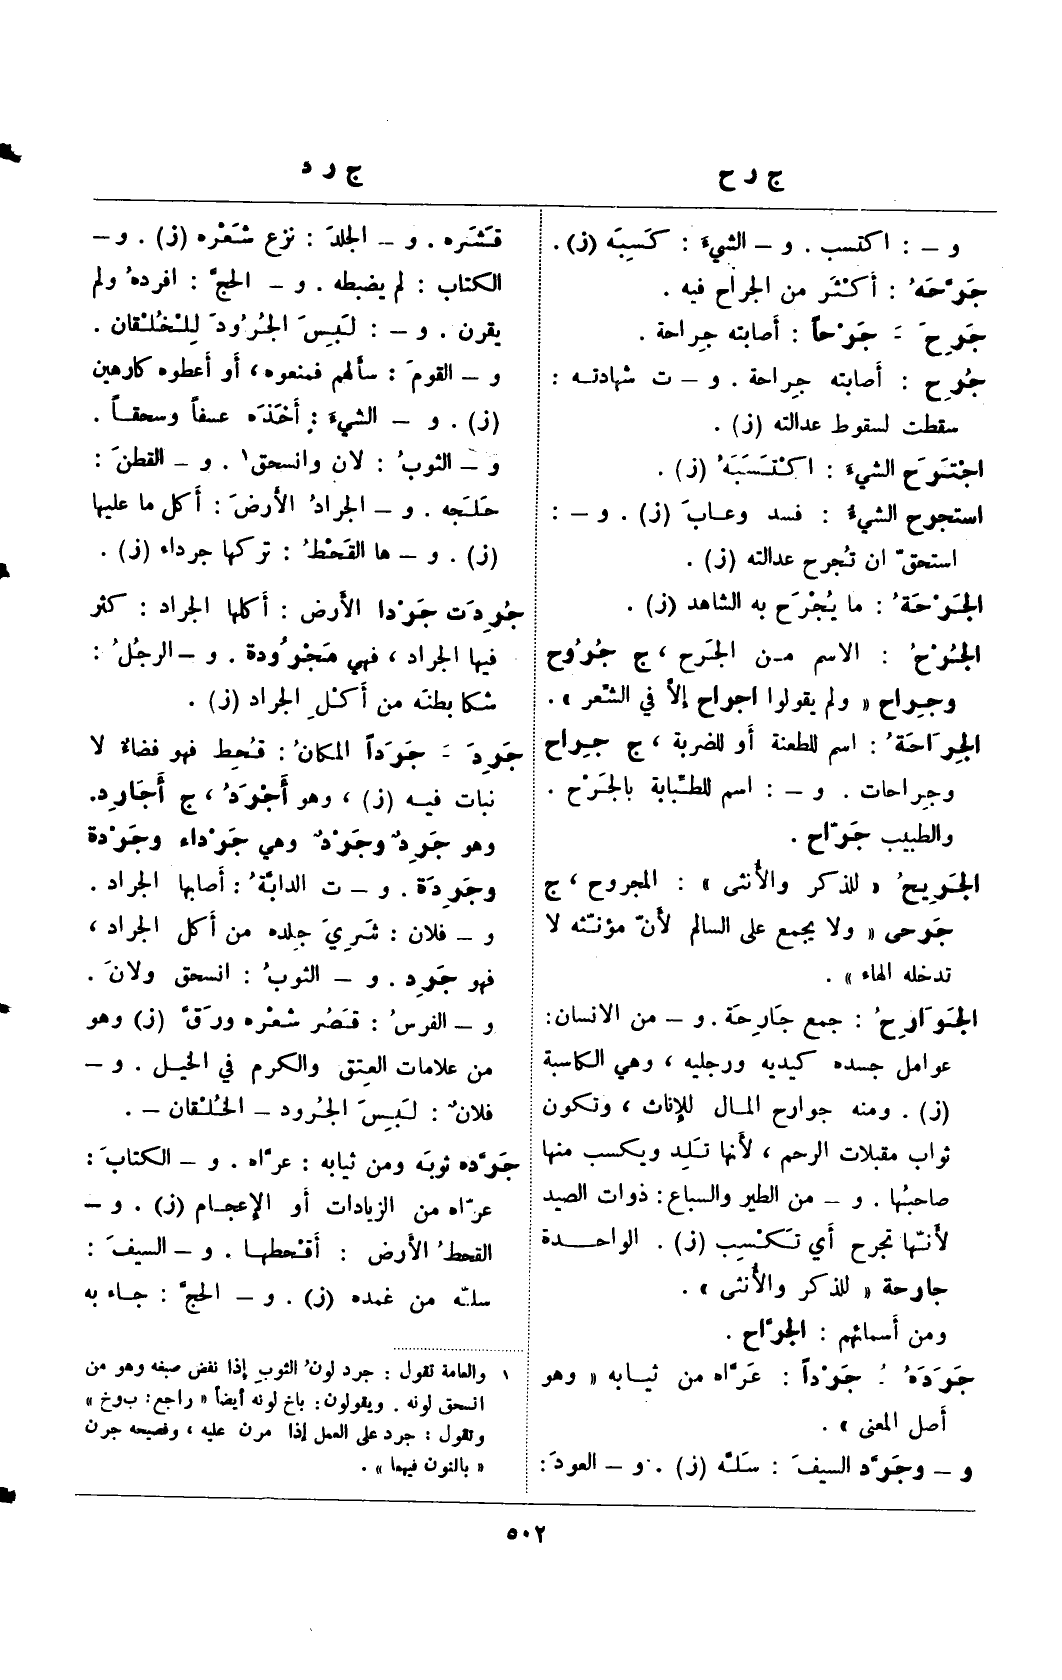 ج ر ح
ج ر د
و – : اكتسب . و – الشيءَ : كَسِبَه (ز).
جَرَّحَهُ : أَكْثَر من الجراح فيه .
جَرِحَ َ جَرْحاً : أصابته جِراحة .
جُرِح : أصابته جِراحة . و – ت شهادته :
سقطت لسقوط عدالته (ز) .
اجْتَرَح الشيءَ : اكْتَسَبَهُ (ز) .
استجرح الشيءُ : فسد وعابَ (ز) . و – :
استحقّ ان تُجرح عدالته (ز) .
الجَرْحَةُ : ما يُجْرَح به الشاهد (ز) .
الجُرْحُ : الاسم من الجَرح ، ج جُرُوح
وجِراح « ولم يقولوا اجراح إلاّ في الشّعر » .
الجِرَاحَةُ : اسم للطعنة أو للضربة ، ج جِراح
وجِراحات . و – : اسم للطّبابة بالجَرْح .
والطبيب جَرّاح .
الجَرِيحُ « للذكر والأُنثى » : المجروح ، ج
جَرحى « ولا يجمع على السالم لأنّ مؤنّثه لا
تدخله الهاء » .
الجَوَارِحُ : جمع جَارِحَة . و – من الانسان :
عوامل جسده كيديه ورجليه ، وهي الكاسبة
(ز) . ومنه جوارح المال للإناث ، وتكون
ثواب مقبلات الرحم ، لأنها تَلِد ويكسب منها
صاحبُها . و – من الطير والسباع : ذوات الصيد
لأنّها تجرح أي تَكْسِب (ز) . الواحدة
جارحة « للذكر والأُنثى » .
ومن أسمائهم : الجَرّاح .
جَرَدَهُ ُ جَرْداً : عَرَّاه من ثيابه « وهو
أصل المعنى » .
و – وجَرَّد السيفَ : سَلَّه (ز) . و – العودَ :
قَشَره . و – الجلدَ : نزع شَعْره (ز) . و–
الكتاب : لم يضبطه . و – الحجَّ : افردهُ ولم
يقرن . و – : لَبِسَ الجُرُودَ لِلْخُلْقان .
و – القومَ : سألهم فمنعوه ، أو أعطوه كارهين
(ز) . و – الشيءَ : أَخَذَه عسفاً وسحقاً .
و – الثوبُ : لان وانسحق١ . و – القطنَ :
حَلَجه . و – الجرادُ الأرضَ : أكل ما عليها
(ز) . و – ها القَحْطُ : تركها جرداء (ز) .
جُرِدَت جَرْدا الأرض : أكلها الجراد : كثر
فيها الجراد ، فهي مَجْرُودة . و – الرجُلُ :
شكا بطنَه من أَكْلِ الجراد (ز) .
جَرِدَ َ جَرَداً المكانُ : قُحِط فهو فضاء لا
نبات فيه (ز) ، وهو أَجْرَدُ ، ج أَجَارِد.
وهو جَرِدٌ وجَرْدٌ وهي جَرْداء وجَرْدة
وجَرِدَة . و – ت الدابّةُ : أصابها الجراد .
و – فلان : شَرِيَ جلده من أكل الجراد ،
فهو جَرِد . و – الثوبُ : انسحق ولانَ .
و – الفرسُ : قَصُر شعْره ورَقَّ (ز) وهو
من علامات العِتق والكرم في الخيل . و –
فلانٌ : لَبِسَ الجُرود – الخُلْقان – .
جَرَّده ثوبَه ومن ثيابه : عرّاه . و – الكتابَ :
عرّاه من الزيادات أو الإعجام (ز) . و –
القحطُ الأرض : أَقْحطها . و – السيفَ :
سلّه من غمده (ز) . و – الحجَّ : جاء به
١ والعامة تقول : جرد لونُ الثوبِ إذا نفض صبغه وهو من
انسحق لونه . ويقولون : باخ لونه أيضاً « راجع : ب وخ »
وتقول : جرد على العمل إذا مرن عليه ، وفصيحه جرن
« بالنون فيهما » .
٥٠٢